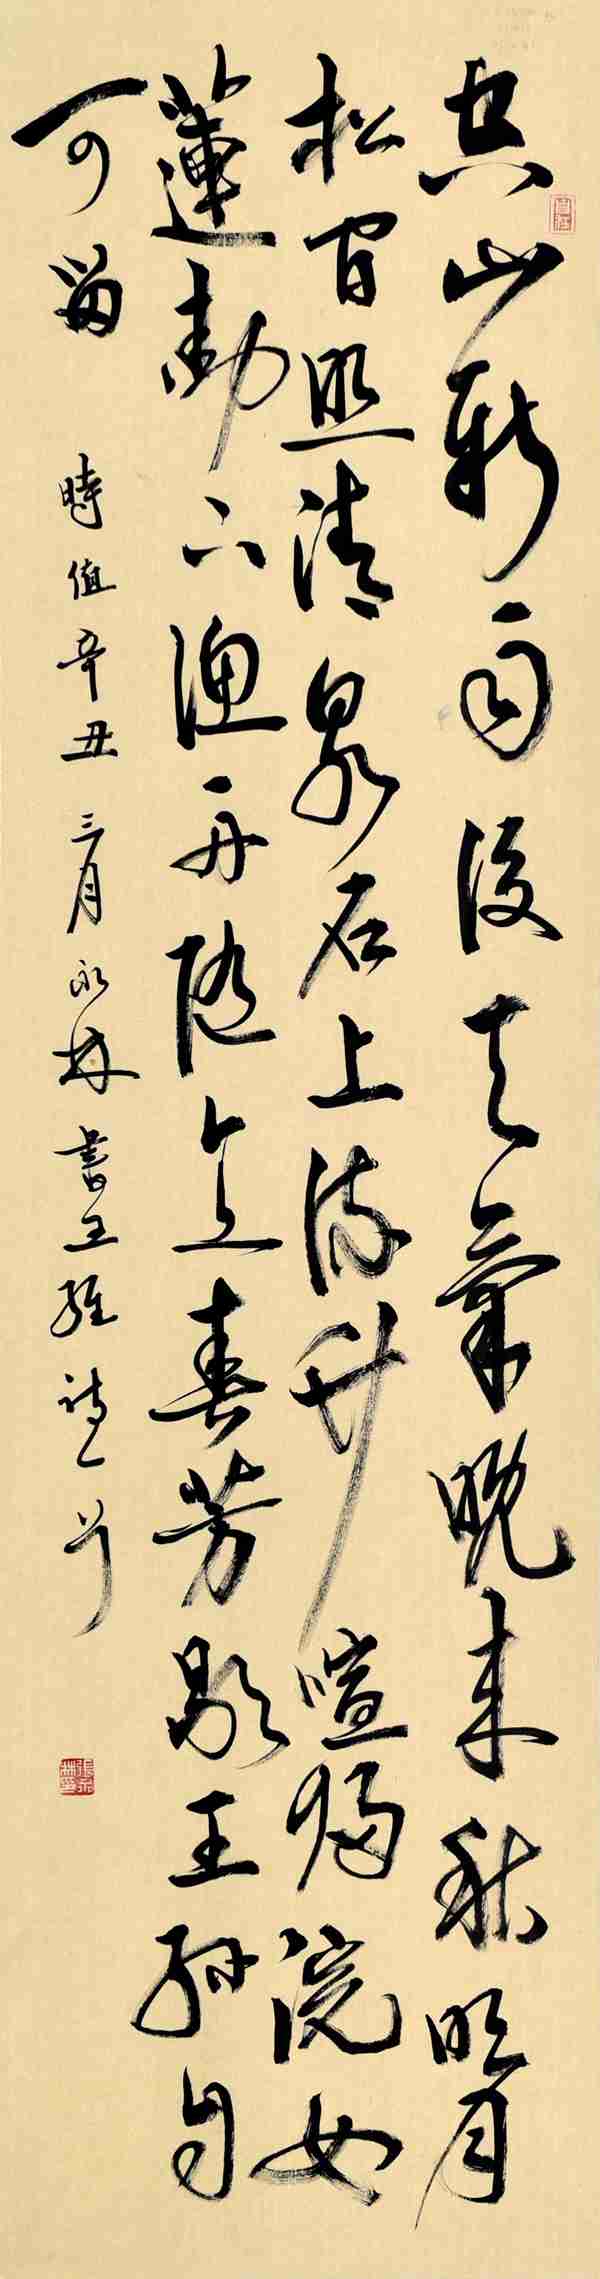 空山新雨後天氣晚來秋明月
松間照清泉石上流竹喧歸浣女
蓮動下漁舟隨意春芳歇王孫自
可留
時值辛丑三月永林書王維詩一首
張永林印